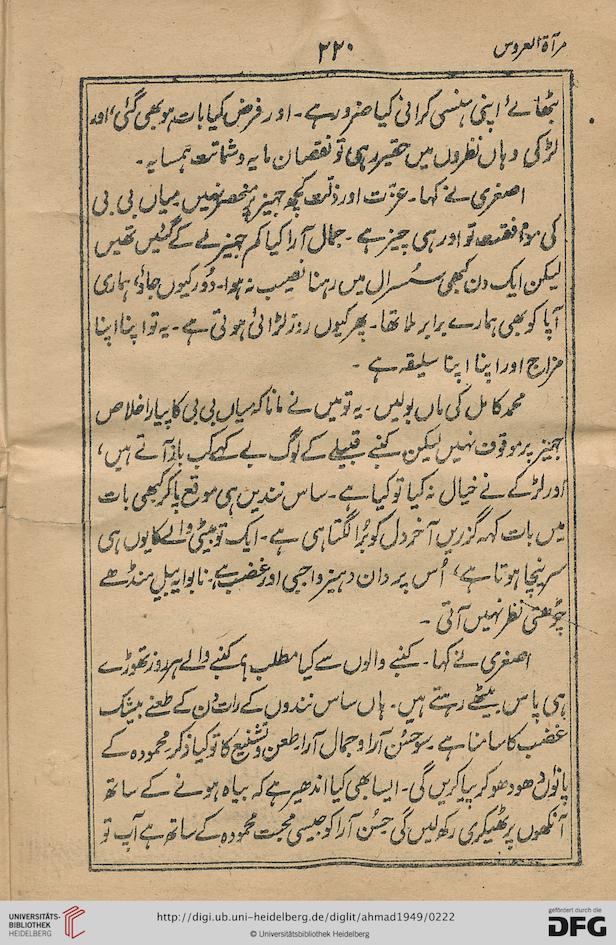 مرآة العروس
۲۲۰
بٹھائے، اپنی ہنسی کرانی کیا ضرور ہے۔ اور فرض کیا بات ہو بھی گئی، اور
لڑکی وہاں نظروں میں حقیر رہی تو نقصان مایہ و شماتت ہمسایہ۔
اصغری نے کہا۔ عزت اور ذلت کچھ جہیز پر منحصر نہیں میاں بی بی
کی موافقت تو اور ہی چیز ہے۔ جمال آرا کیا کم جہیز لے کے گئیں تھیں
لیکن ایک دن کبھی سسرال میں رہنا نصیب نہ ہوا۔ دُور کیوں جاؤ، ہماری
آپا کو بھی ہمارے برابر ملا تھا۔ پھر کیوں روز لڑائی ہوتی ہے۔ یہ تو اپنا اپنا
مزاج اور اپنا اپنا سلیقہ ہے۔
محمد کامل کی ماں بولیں۔ یہ تو میں نے مانا کہ میاں بی بی کا پیار اخلاص
جہیز پر موقوف نہیں لیکن کنبے قبیلے کے لوگ بے کہے کب باز آتے ہیں،
اور لڑکے نے خیال نہ کیا تو کیا ہے۔ ساس نندیں ہی موقع پا کر کبھی بات
میں بات کہہ گزریں آخر دل کو بُرا لگتا ہی ہے۔ ایک تو بیٹی والے کا یوں ہی
سر نیچا ہوتا ہے، اُس پر دان دہیز واجبی اور غضب ہے۔ نا بوا یہ بیل منڈھے
چڑھتی نظر نہیں آتی۔
اصغری نے کہا۔ کنبے والوں سے کیا مطلب، کنبے والے ہر روز تھوڑے
ہی پاس بیٹھے رہتے ہیں۔ ہاں ساس نندوں کے رات دن کے طعنے بیشک
غضب کا سامنا ہے۔ سو حسن آرا و جمال آرا طعن و تشنیع کا تو کیا ذکر، محمودہ کے
پانوں دھو دھو کر پیا کریں گی۔ ایسا بھی کیا اندھیر ہے کہ بیاہ ہونے کے ساتھ
آنکھوں پر ٹھیکری رکھ لیں گی حسن آرا کو جیسی محبت محمودہ کے ساتھ ہے آپ تو
UNIVERSITÄTS-
BIBLIOTHEK
HEIDELBERG
http://digi.ub.uni-heidelberg.de/diglit/ahmad1949/0222
© Universitätsbibliothek Heidelberg
gefördert durch die
DFG